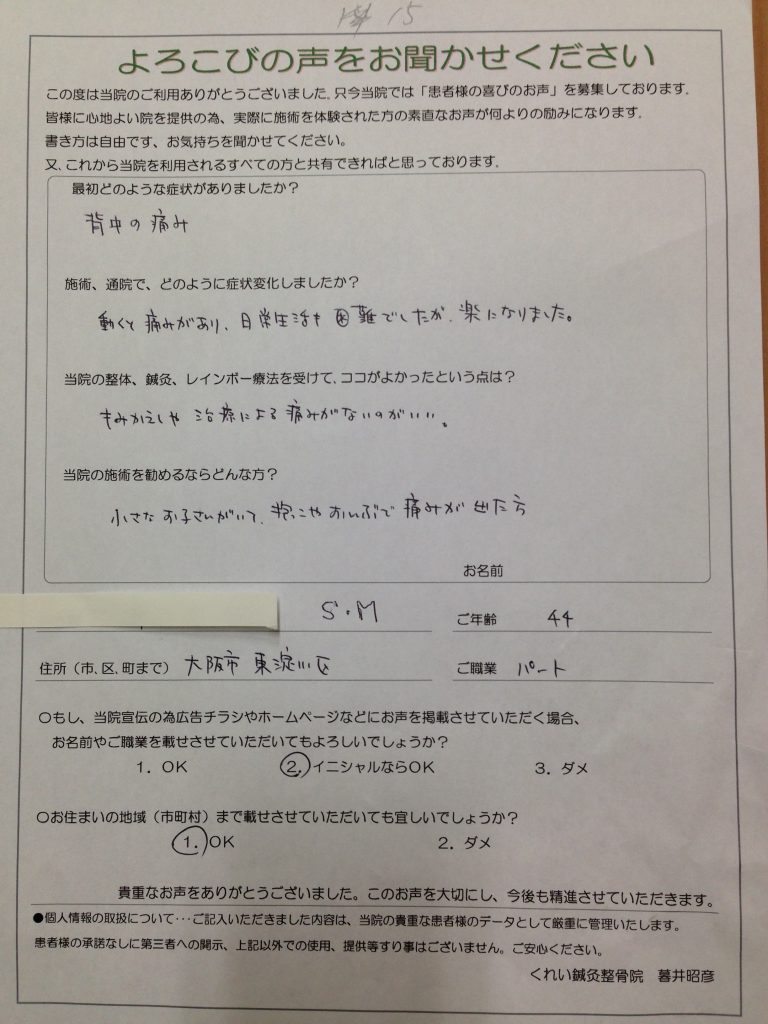 15
よろこびの声をお聞かせください
この度は当院のご利用ありがとうございました。只今当院では「患者様の喜びのお声」を募集しております。
皆様に心地よい院を提供の為、実際に施術を体験された方の素直なお声が何よりの励みになります。
書き方は自由です、お気持ちを聞かせてください。
又、これから当院を利用されるすべての方と共有できればと思っております。
最初どのような症状がありましたか？
背中の痛み
施術、通院で、どのように症状変化しましたか？
動くと痛みがあり、日常生活も困難でしたが、楽になりました。
当院の整体、鍼灸、レインボー療法を受けて、ココがよかったという点は？
もみかえしや治療による痛みがないのがいい。
当院の施術を勧めるならどんな方？
小さなお子さんがいて、抱っこやおんぶで痛みが出た方
お名前
S・M
ご年齢 44
住所（市、区、町まで）大阪市 東淀川区
ご職業 パート
〇もし、当院宣伝の為広告チラシやホームページなどにお声を掲載させていただく場合、
お名前やご職業を載せさせていただいてもよろしいでしょうか？
1．OK 2．イニシャルならOK 3．ダメ
〇お住まいの地域（市町村）まで載せさせていただいても宜しいでしょうか？
1．OK 2．ダメ
貴重なお声をありがとうございました。このお声を大切にし、今後も精進させていただきます。
●個人情報の取扱について･･･ご記入いただきました内容は、当院の貴重な患者様のデータとして厳重に管理いたします。
患者様の承諾なしに第三者への開示、上記以外での使用、提供等すり事はございません。ご安心ください。
くれい鍼灸整骨院 暮井昭彦